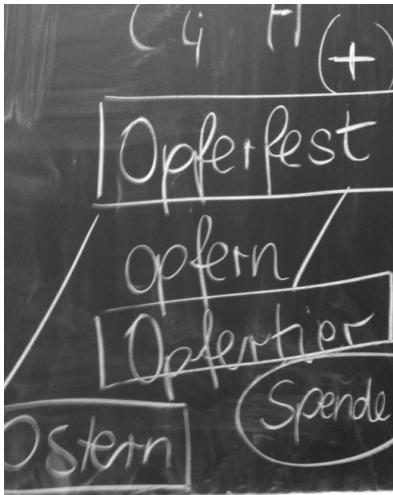 (+)
Opferfest
opfern
Opfertier
Spende
Ostern